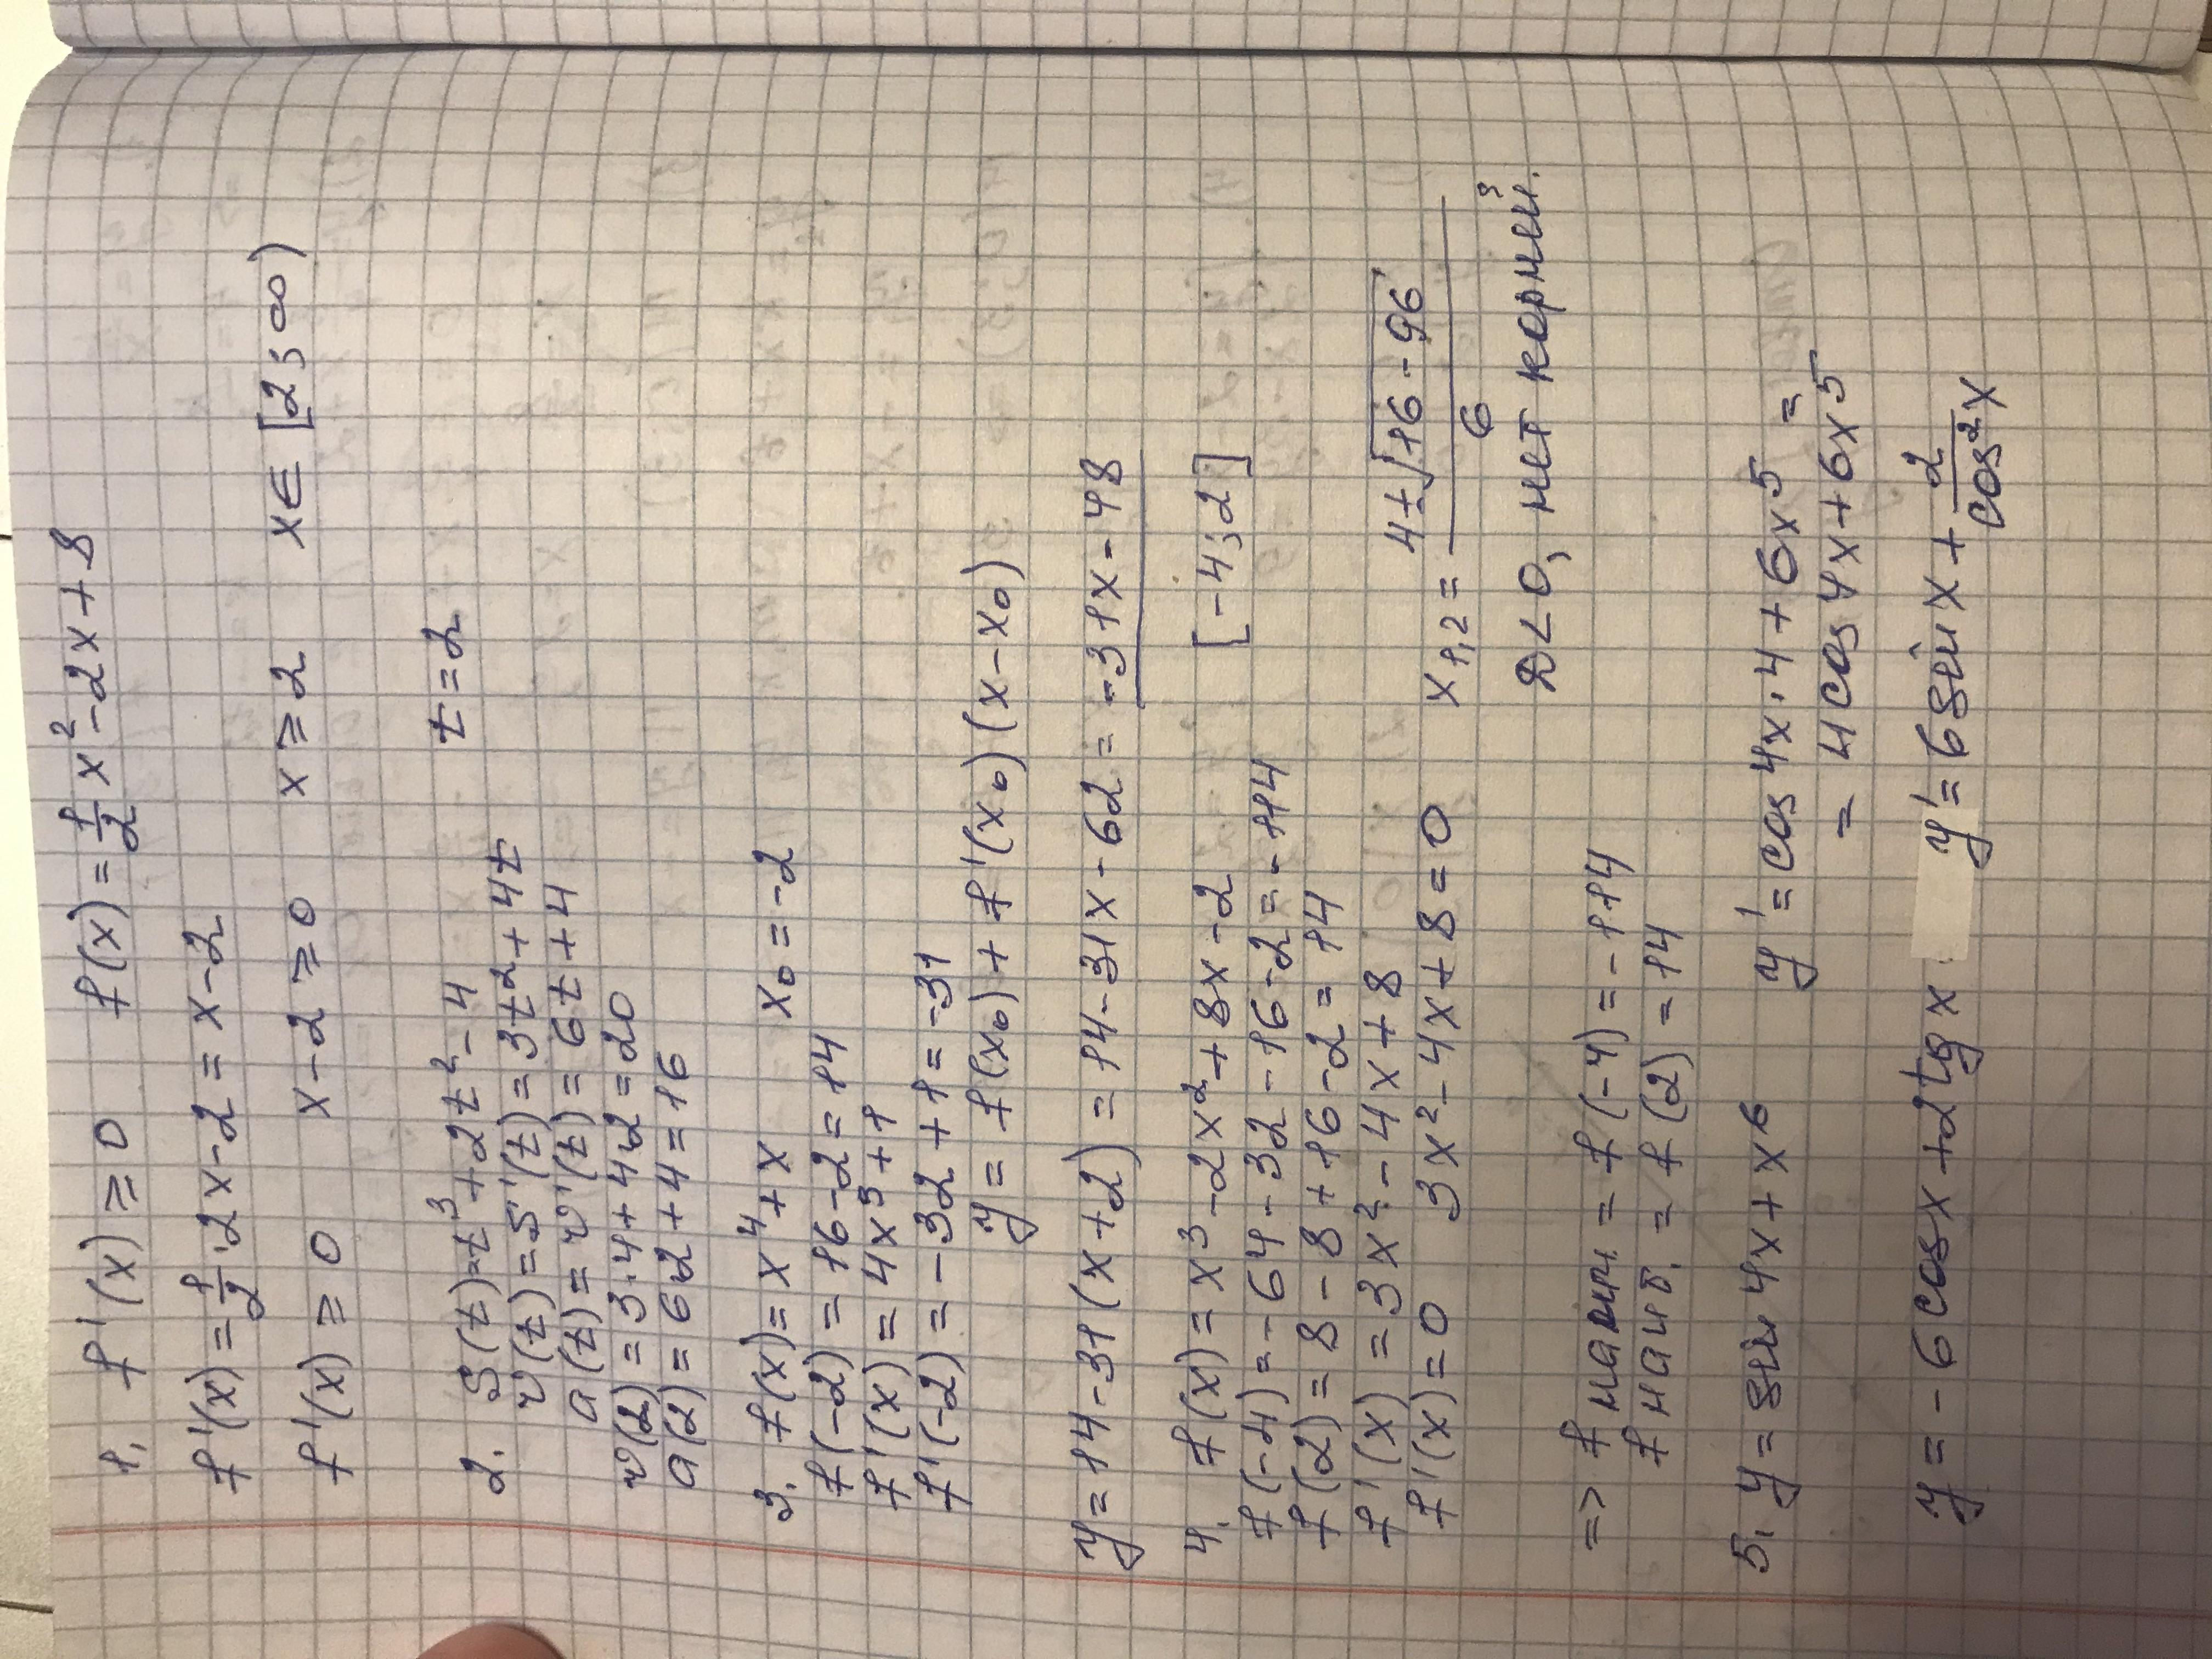 1. f'(x) ≥ 0 f(x) = 1/2 x² - 2x + 8
f'(x) = 1/2 · 2x - 2 = x - 2
f'(x) ≥ 0 x - 2 ≥ 0 x ≥ 2 x ∈ [2; ∞)
2. S(t) = t³ + 2t² - 4 t = 2
v(t) = S'(t) = 3t² + 4t
a(t) = v'(t) = 6t + 4
v(2) = 3·4 + 4·2 = 20
a(2) = 6·2 + 4 = 16
3. f(x) = x⁴ + x x₀ = -2
f(-2) = 16 - 2 = 14
f'(x) = 4x³ + 1
f'(-2) = -32 + 1 = -31
y = f(x₀) + f'(x₀)(x - x₀)
y = 14 - 31(x + 2) = 14 - 31x - 62 = -31x - 48
4. f(x) = x³ - 2x² + 8x - 2 [-4; 2]
f(-4) = -64 - 32 - 16 - 2 = -114
f(2) = 8 - 8 + 16 - 2 = 14
f'(x) = 3x² - 4x + 8
f'(x) = 0 3x² - 4x + 8 = 0 x₁,₂ = (4 ± √(16 - 96))/6
D < 0, нет корней.
=> f наим = f(-4) = -114
f наиб. = f(2) = 14
5. y = sin 4x + x⁶ y' = cos 4x · 4 + 6x⁵ =
= 4 cos 4x + 6x⁵
y = -6 cos x + 2 tg x y' = 6 sin x + 2/cos² x